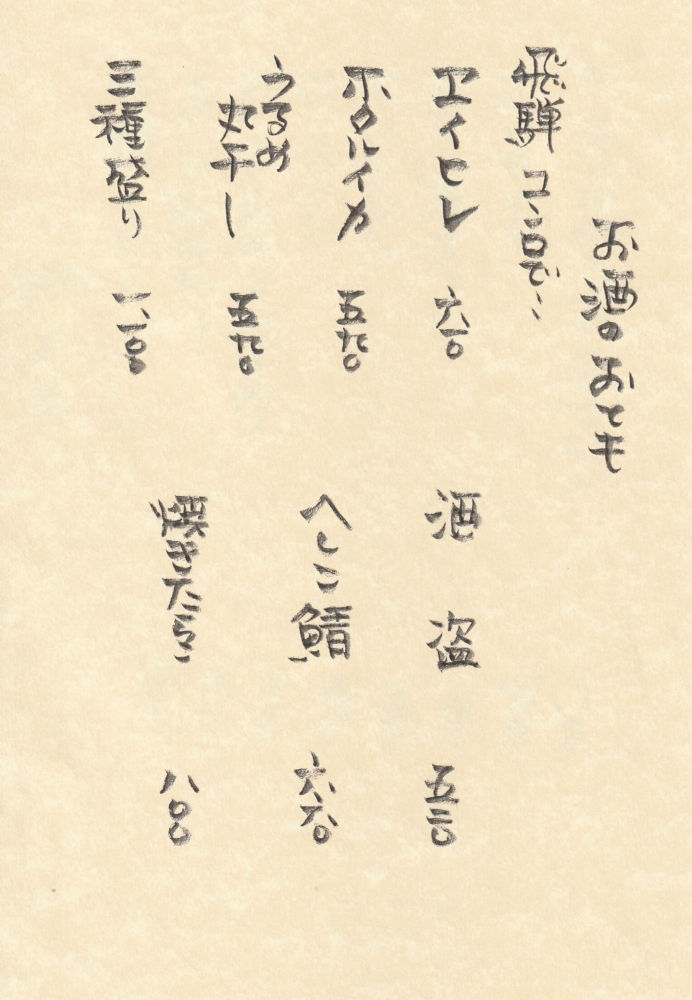 お酒のおとも
飛騨コンロで…
エイヒレ 六一〇
ホタルイカ 五九〇
うるめ
丸干し 五九〇
三種盛り 一、一〇〇
酒盗 五三〇
へしこ鯖 六六〇
焼きたらこ 八〇〇